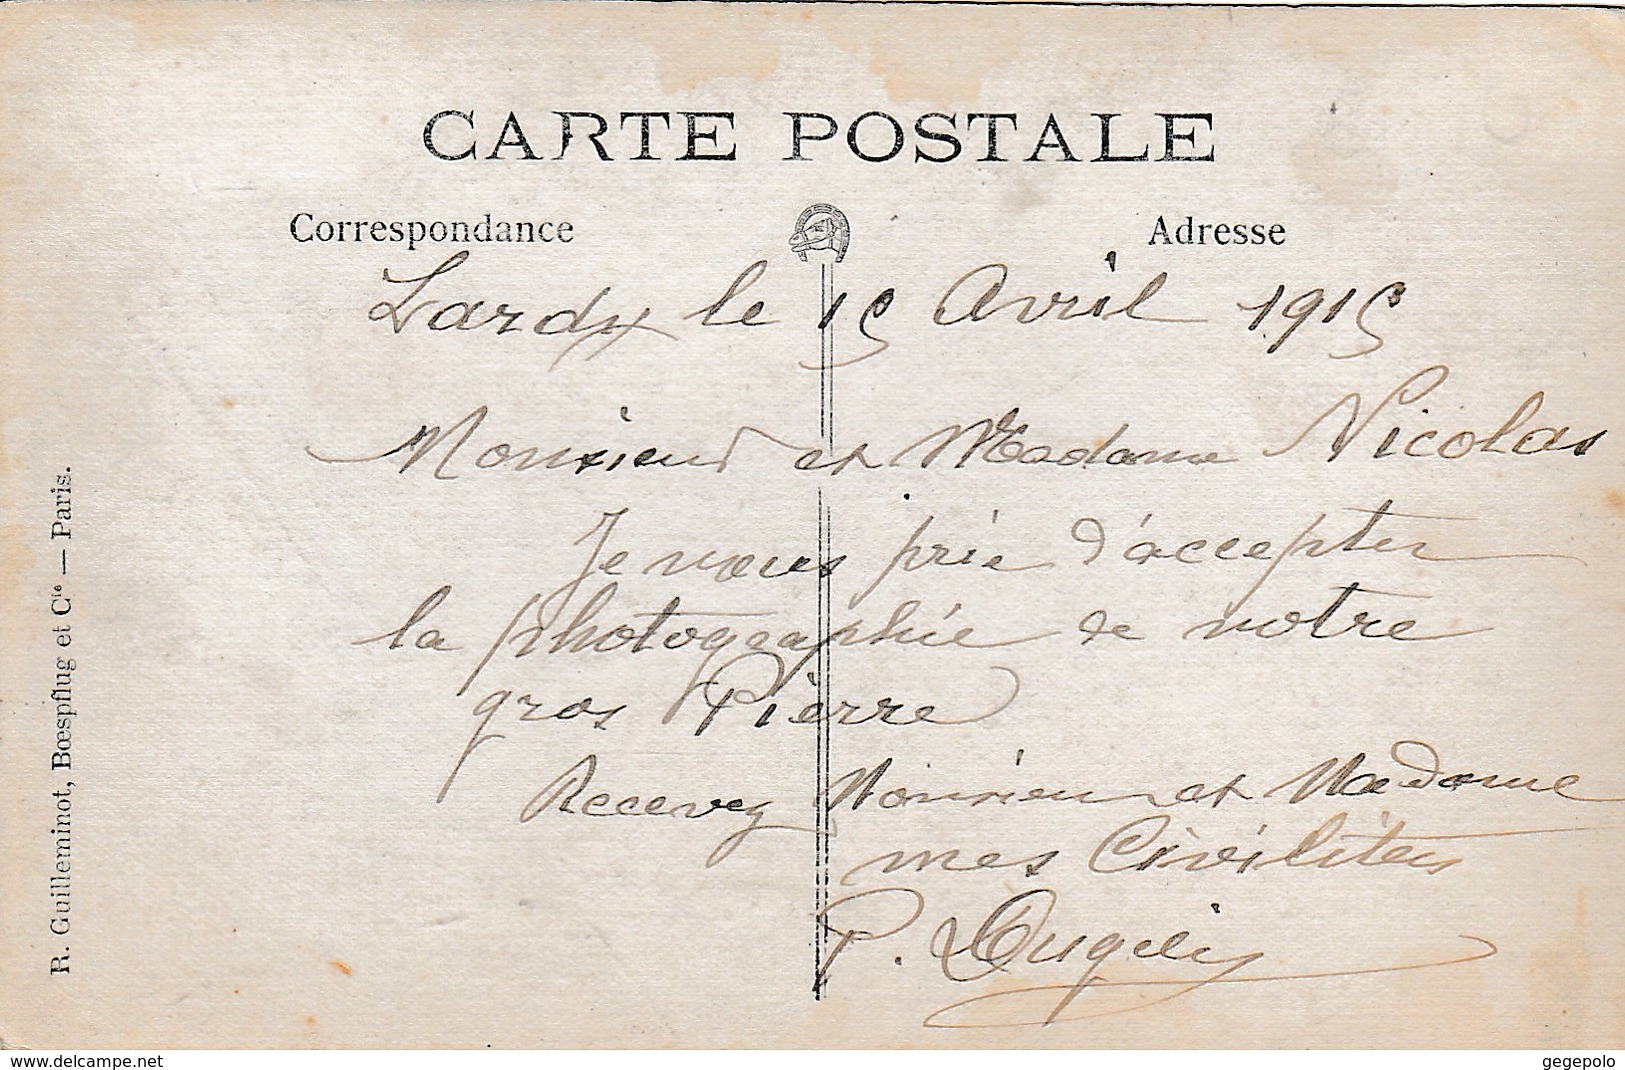 CARTE POSTALE
Correspondance
Adresse
Lardy le 15 Avril 1915
Monsieur et Madame Nicolas
Je vous prie d'accepter
la photographie de notre
gros Pierre
Recevez Monsieur et Madame
mes Civilitées
P.
R. Guilleminot, Bœspflug et Cie — Paris.
www.delcampe.net
gegepolo